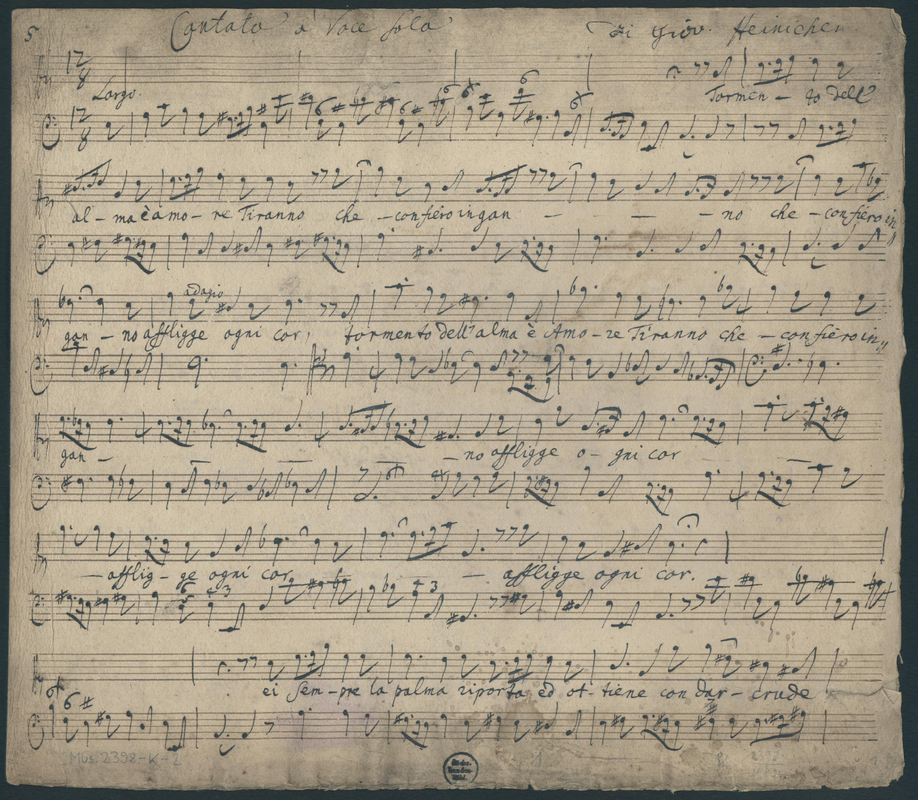 5
Cantata a Voce Sola Di Giov. Heinichen
12/8
Largo.
Tormen - to dell'
12/8
al - ma è amo - re Tiranno che - con fiero ingan - - - no che - con fiero in
adagio
gan - no affligge ogni cor, tormento dell'alma è Amo - re Tiranno che - con fiero in
gan - - no affligge o - gni cor
- afflig - ge ogni cor - affligge ogni cor.
ei sem - pre la palma riporta ed ot - tiene con dar - crude
Mus. 2398-K-2
1